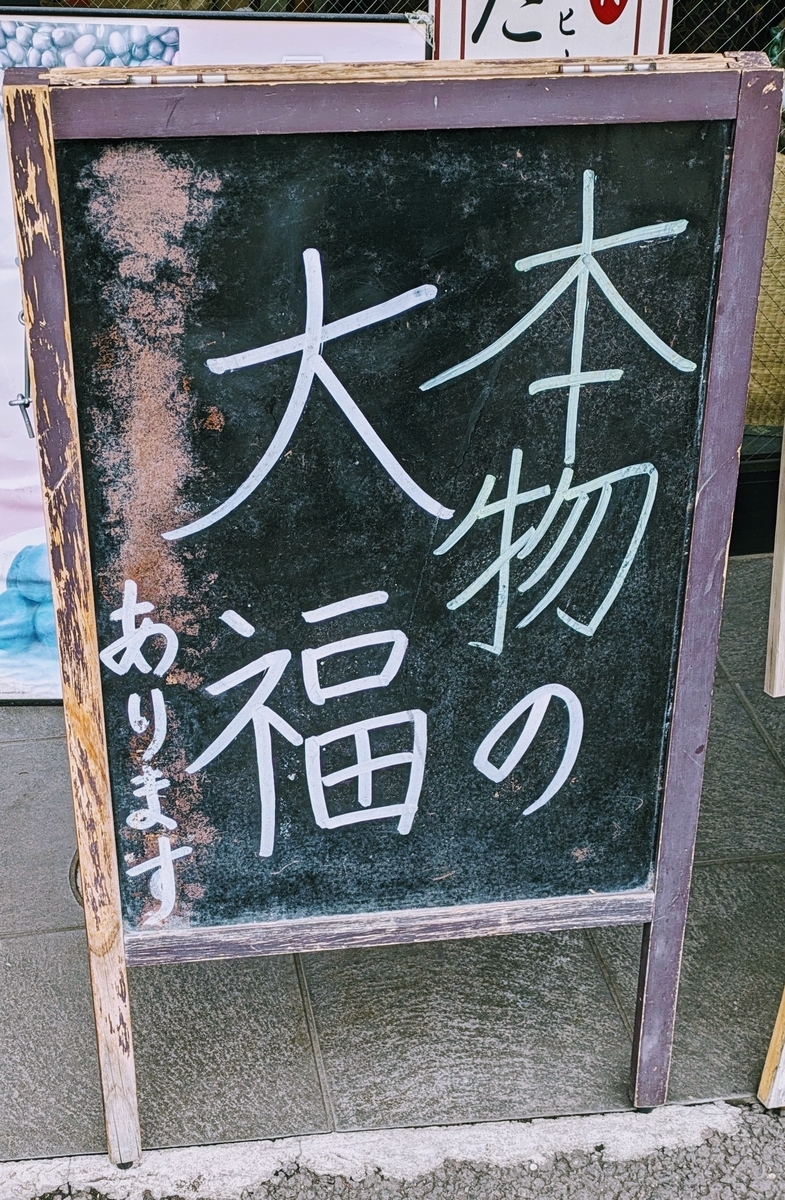 本物の
大福
あります